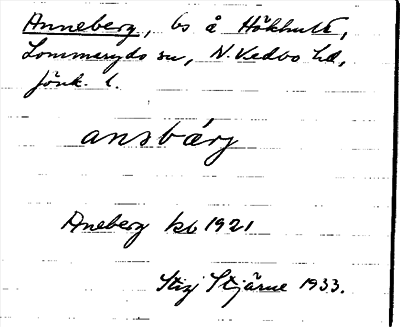 Anneberg, bs å Hökhult,
Lommaryds sn, N. Vedbo hd,
Jönk. l.
ansbärj
Aneberg kb 1921
Stig Stjärne 1933.